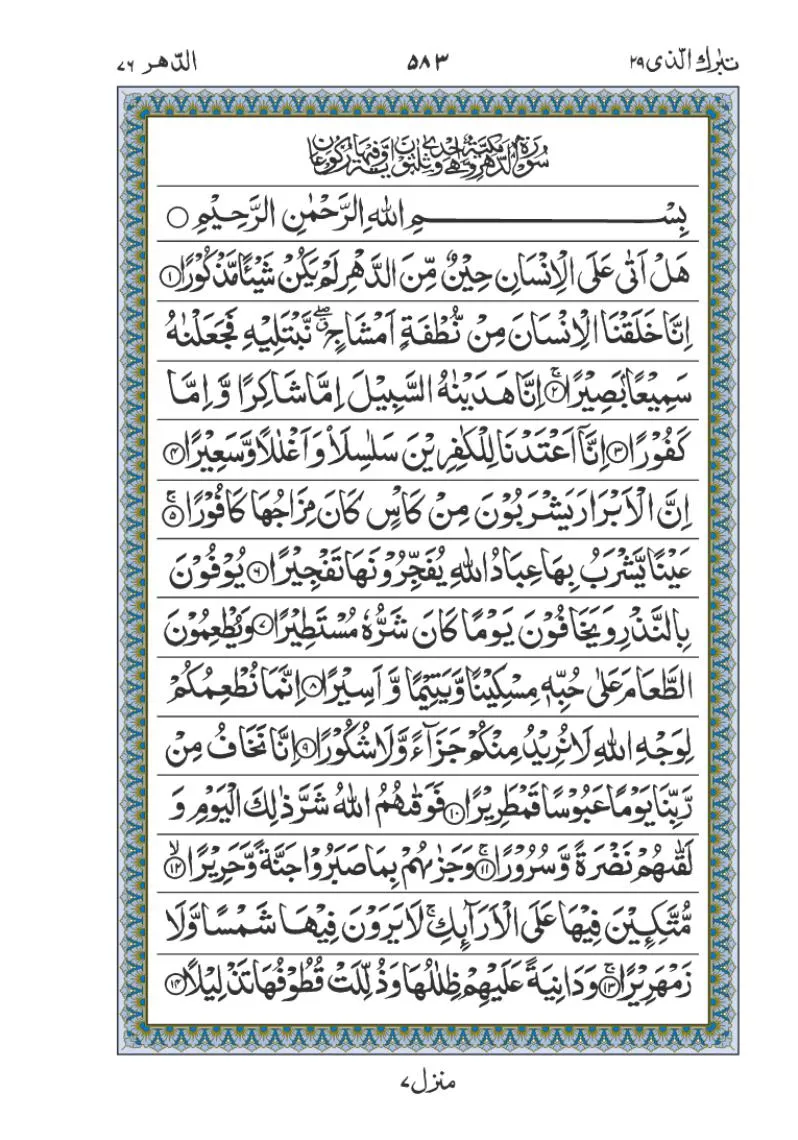 تبٰرك الّذی ۲۹ ۵۸۳ الدّهر ۷۶
سُوْرَةُ الدَّهْرِ مَكِّيَّةٌ وَّهِيَ اِحْدٰى وَثَلٰثُوْنَ اٰيَةً وَّفِيْهَا رُكُوْعَانِ
بِسْمِ اللّٰهِ الرَّحْمٰنِ الرَّحِيْمِ ○
هَلْ اَتٰى عَلَى الْاِنْسَانِ حِيْنٌ مِّنَ الدَّهْرِ لَمْ يَكُنْ شَيْـًٔا مَّذْكُوْرًا ۝۱
اِنَّا خَلَقْنَا الْاِنْسَانَ مِنْ نُّطْفَةٍ اَمْشَاجٍ ۖۗ نَّبْتَلِيْهِ فَجَعَلْنٰهُ
سَمِيْعًۢا بَصِيْرًا ۝۲ۚ اِنَّا هَدَيْنٰهُ السَّبِيْلَ اِمَّا شَاكِرًا وَّ اِمَّا
كَفُوْرًا ۝۳ اِنَّاۤ اَعْتَدْنَا لِلْكٰفِرِيْنَ سَلٰسِلَا۟ وَ اَغْلٰلًا وَّسَعِيْرًا ۝۴
اِنَّ الْاَبْرَارَ يَشْرَبُوْنَ مِنْ كَاْسٍ كَانَ مِزَاجُهَا كَافُوْرًا ۝۵ۚ
عَيْنًا يَّشْرَبُ بِهَا عِبَادُ اللّٰهِ يُفَجِّرُوْنَهَا تَفْجِيْرًا ۝۶ يُوْفُوْنَ
بِالنَّذْرِ وَيَخَافُوْنَ يَوْمًا كَانَ شَرُّهٗ مُسْتَطِيْرًا ۝۷ وَيُطْعِمُوْنَ
الطَّعَامَ عَلٰى حُبِّهٖ مِسْكِيْنًا وَّيَتِيْمًا وَّ اَسِيْرًا ۝۸ اِنَّمَا نُطْعِمُكُمْ
لِوَجْهِ اللّٰهِ لَا نُرِيْدُ مِنْكُمْ جَزَآءً وَّلَا شُكُوْرًا ۝۹ اِنَّا نَخَافُ مِنْ
رَّبِّنَا يَوْمًا عَبُوْسًا قَمْطَرِيْرًا ۝۱۰ فَوَقٰىهُمُ اللّٰهُ شَرَّ ذٰلِكَ الْيَوْمِ وَ
لَقّٰىهُمْ نَضْرَةً وَّسُرُوْرًا ۝۱۱ۚ وَجَزٰىهُمْ بِمَا صَبَرُوْا جَنَّةً وَّحَرِيْرًا ۝۱۲ۙ
مُّتَّكِـِٕيْنَ فِيْهَا عَلَى الْاَرَآئِكِ ۚ لَا يَرَوْنَ فِيْهَا شَمْسًا وَّلَا
زَمْهَرِيْرًا ۝۱۳ۚ وَدَانِيَةً عَلَيْهِمْ ظِلٰلُهَا وَذُلِّلَتْ قُطُوْفُهَا تَذْلِيْلًا ۝۱۴
منزل ۷